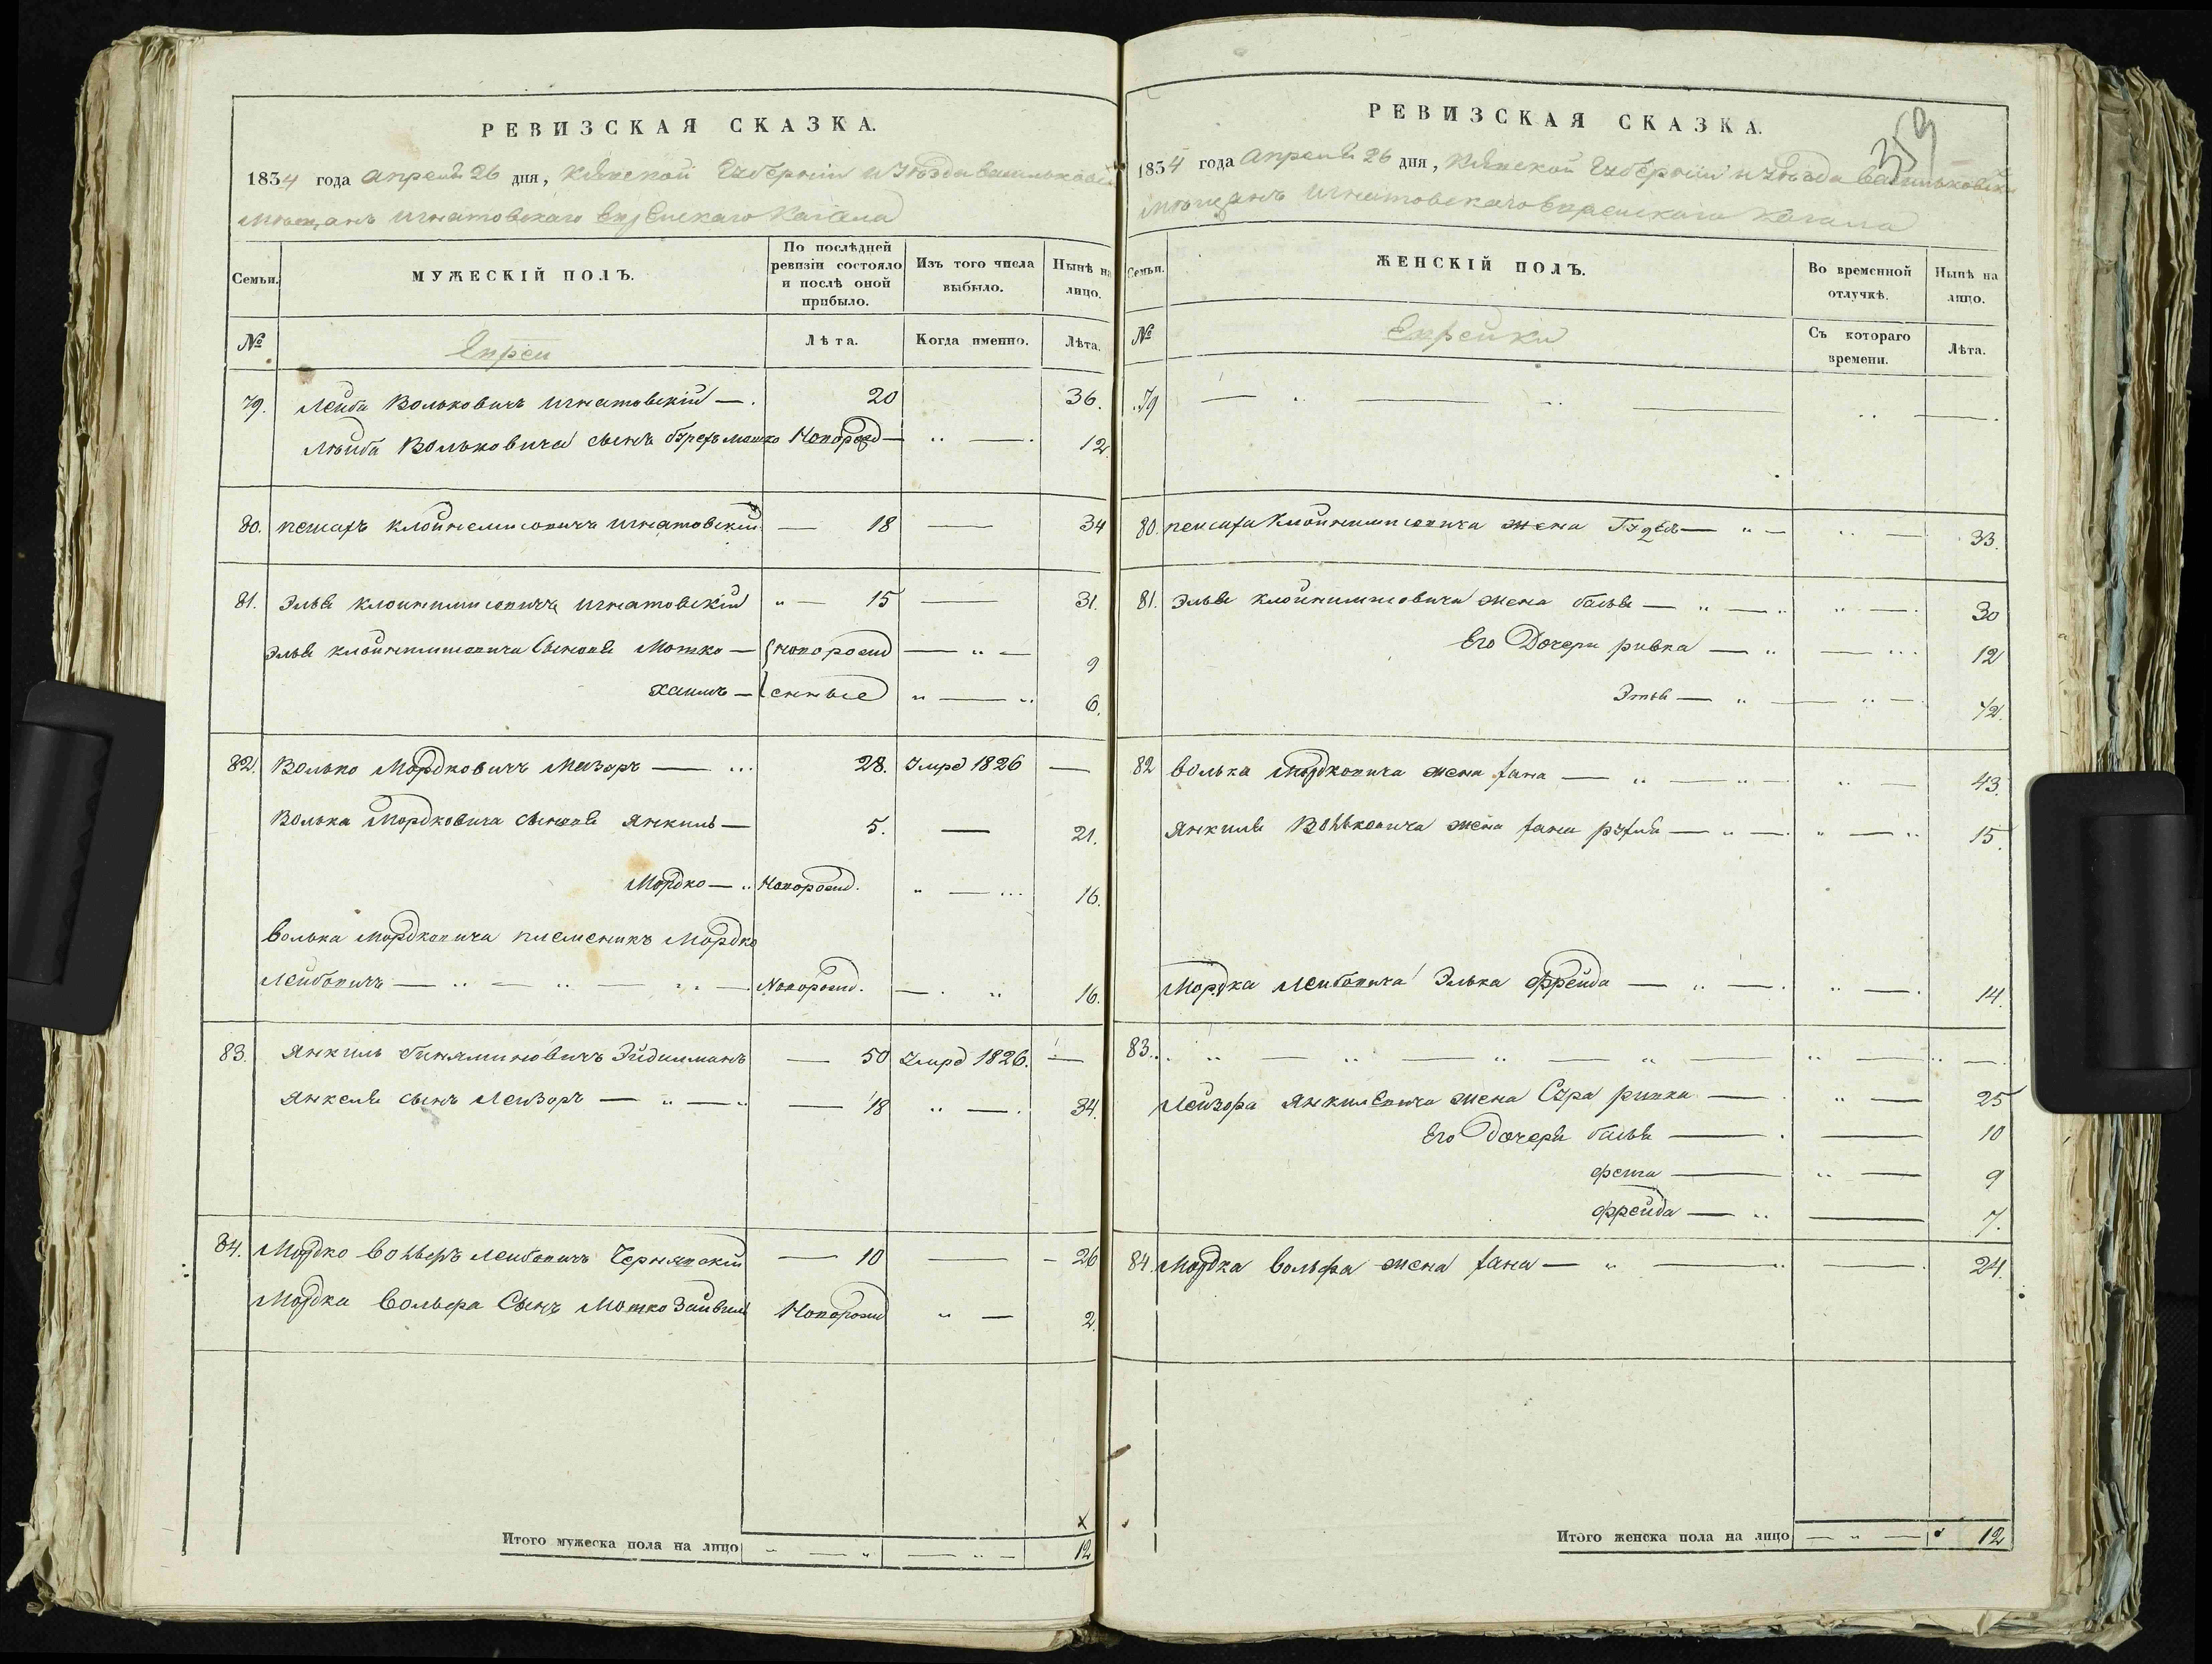 РЕВИЗСКАЯ СКАЗКА.
1834 года апреля 26 дня, Кіевской Губерніи и Уѣзда Васильковска
Мѣщанъ Игнатовскаго Еврейскаго Кагала
Семьи.
МУЖЕСКІЙ ПОЛЪ.
По послѣдней ревизіи состояло и послѣ оной прибыло.
Изъ того числа выбыло.
Нынѣ на лицо.
№
Евреи
Лѣта.
Когда именно.
Лѣта.
79. Лейба Вольковичъ Игнатовскій — 20 36.
Лейба Вольковича сынъ Мошко Новорожд — 12.
80. Пейсахъ Игнатовскій — 18 — 34
81. Эльь Игнатовскій — 15 — 31.
Эльь сыновья Мошко — новорожд — 9
Хаимъ — енные — 6.
82. Волько Мордковичъ Мейзоръ — 28. Умре 1826 —
Волька Мордковича сыновья Янкиль — 5. — 21.
Мордко — Новорожд. — 16.
Волька Мордковича племеникъ Мордко
Лейбовичъ — Новорожд. — 16.
83. Янкиль Биняминовичъ Эйдилманъ — 50 Умре 1826. —
Янкеля сынъ Лейзоръ — 18 — 34.
84. Мордко Вольфъ Лейбовичъ Чернявскій — 10 — 26
Мордка Вольфа Сынъ Мошко Зайвиль Новорожд — 2.
Итого мужеска пола на лицо — 12
РЕВИЗСКАЯ СКАЗКА.
359
1834 года Апреля 26 дня, Кіевской Губерніи и Уѣзда Васильковска
Мѣщанъ Игнатовскаго Еврейскаго Кагала
Семьи.
ЖЕНСКІЙ ПОЛЪ.
Во временной отлучкѣ.
Нынѣ на лицо.
№
Еврейки
Съ котораго времени.
Лѣта.
79 —
80. Пейсаха жена — 33.
81. Эльь жена Бася — 30
Его Дочери Ривка — 12
Этля — 12.
82 Волька Мордковича жена Хана — 43.
Янкиля Вольковича жена Хана Рухля — 15.
Мордка Лейбовича Элька Фрейда — 14.
83. —
Лейзора Янкилевича жена Сура Ривка — 25
Его Дочери Бася — 10
Фейга — 9
Фрейда — 7.
84. Мордка Вольфа жена Хана — 24.
Итого женска пола на лицо — 12